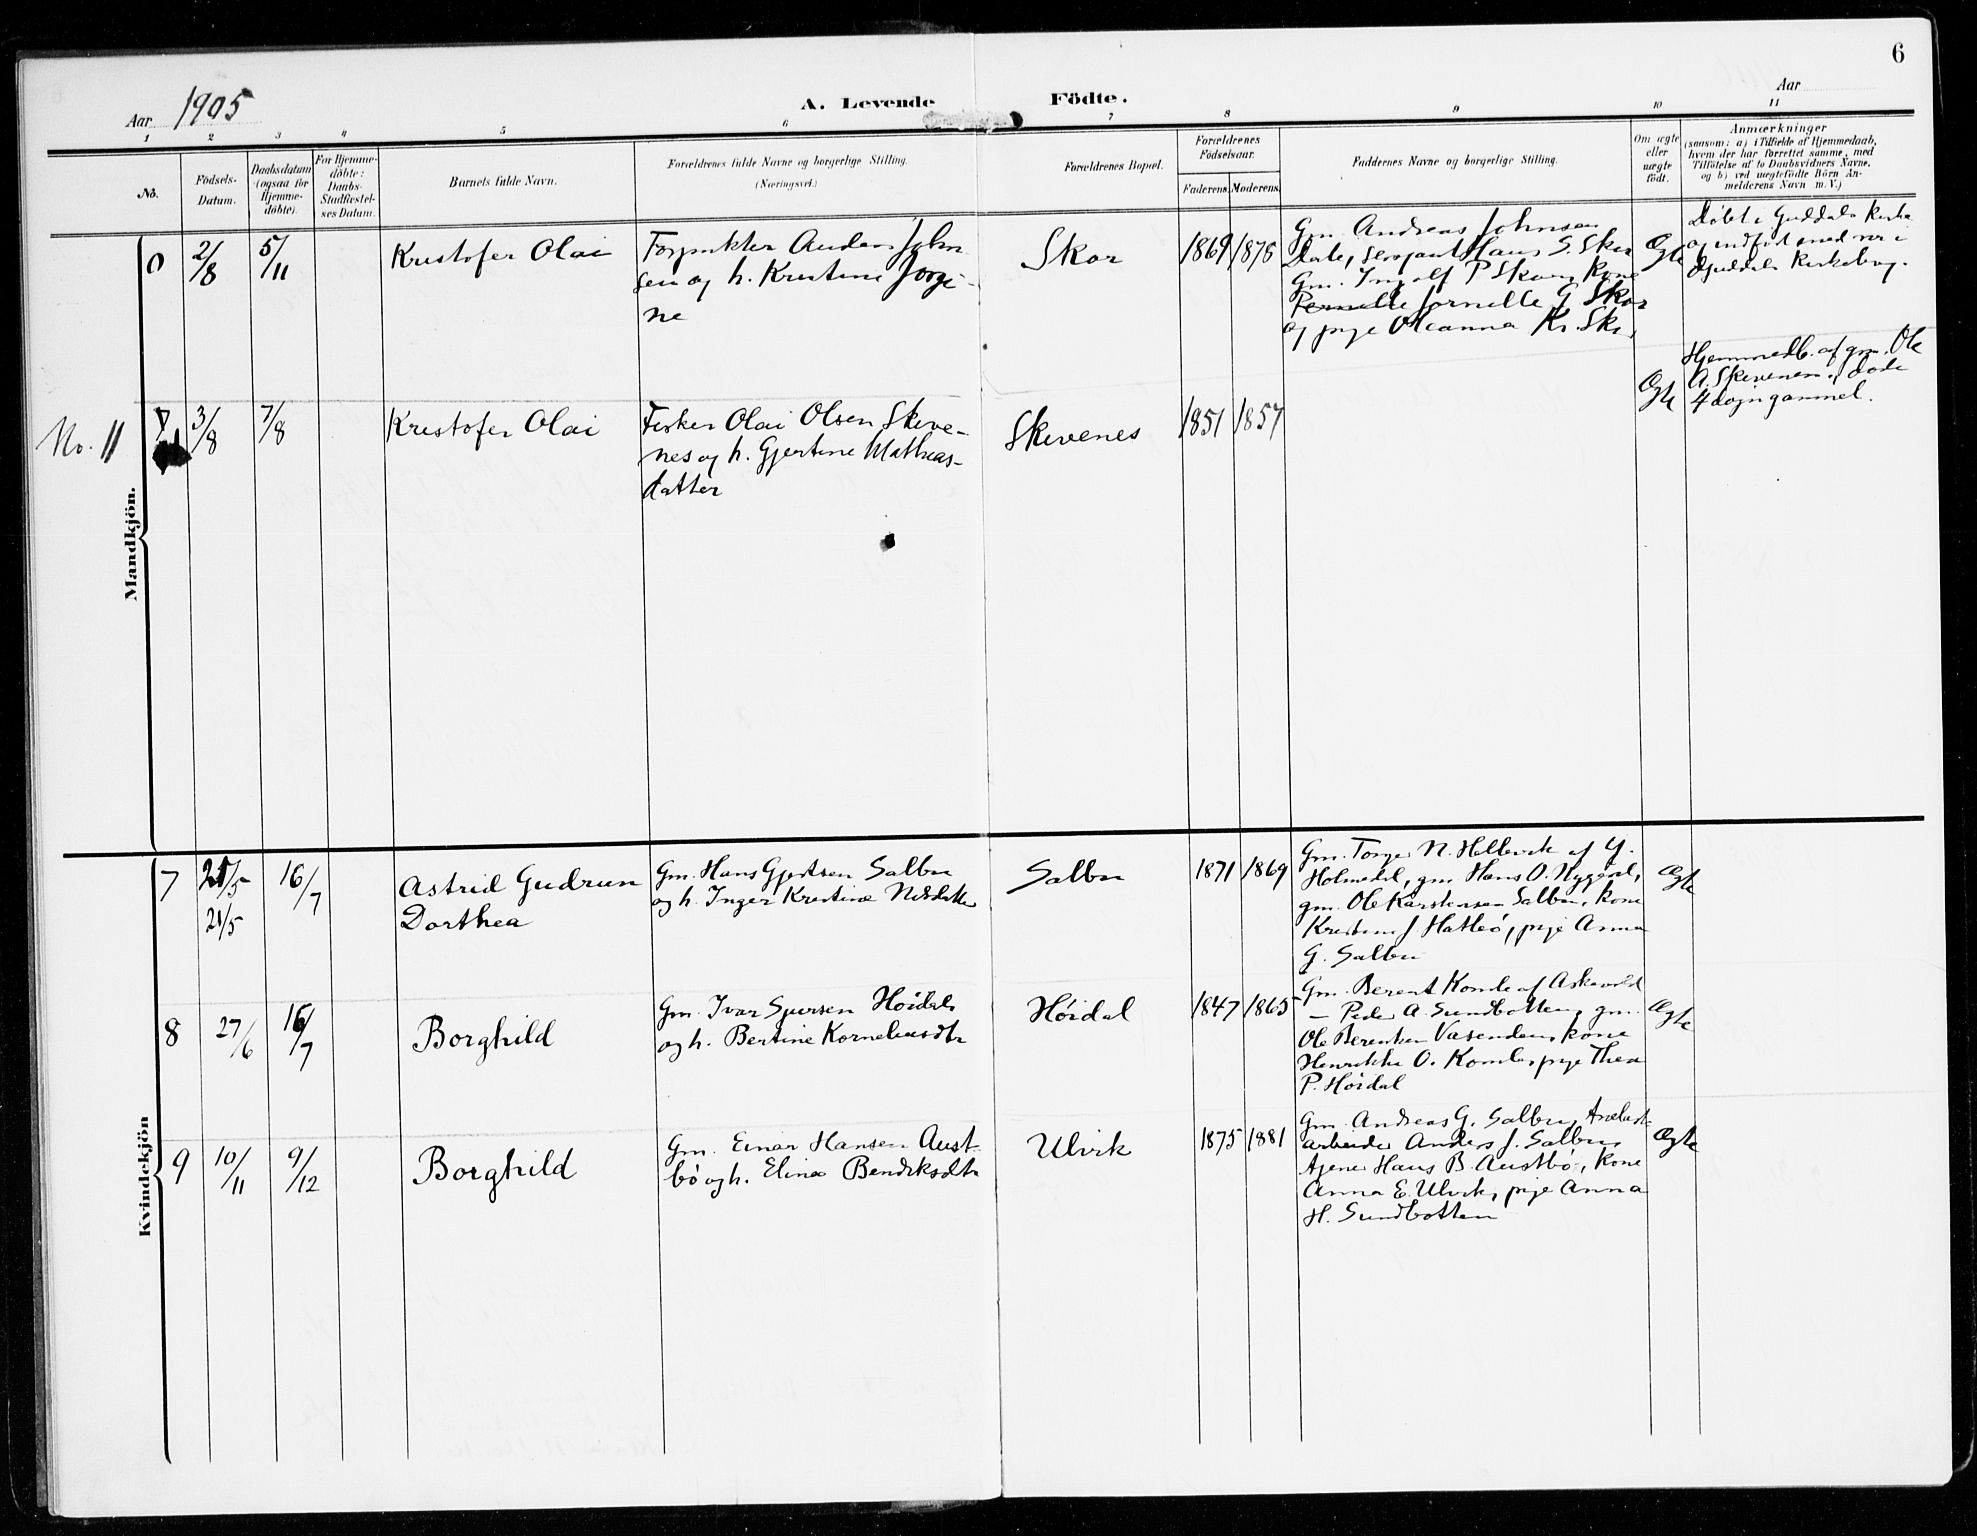 6
Aar 1905
A. Levende Födte.
Aar
1 2 3 4 5 6 7 8 9 10 11
No.
Födsels-
Datum.
Daabsdatum
(ogsaa for
Hjemme-
döbte).
For Hjemme-
döbte:
Daabs-
Stadfæstel-
ses Datum.
Barnets fulde Navn.
Forældrenes fulde Navne og borgerlige Stilling.
(Næringsvei.)
Forældrenes Bopæl.
Forældrenes
Födselsaar.
Faderens. Moderens.
Faddernes Navne og borgerlige Stilling.
Om ægte
eller
uægte
födt.
Anmærkninger
(saasom: a) i Tilfælde af Hjemmedaab,
hvem der har forrettet samme, med
Tilföielse af to Daabsvidners Navne,
og b) ved uægtefödte Börn An-
melderens Navn m. V.)
Mandkjön.
0 2/8 5/11
Kristofer Olai
Forpakter Anders John
sen og h. Kristine Jørgi-
ne
Skor
1869 1876
Gm. Andreas Johnsen
Dale, sersjant Hans S. Skor
Gm. Ingolf P Skor, kone
Pernille Jornelle G Skor
og pige Oleanna Kr. Skor
Ægte
Døbt i Guddals Kirke
og indført med nr i
Guddals Kirkebog.
No. 11
3/8 7/8
Kristofer Olai
Fisker Olai Olsen Skive-
nes og h. Gjertine Mathias-
datter
Skivenes
1851 1857
Ægte
Hjemmedb. af gm. Ole
A. Skivenes, døde
4 døgn gammel.
Kvindekjön
7 21/5 16/7
21/5
Astrid Gudrun
Dorthea
Gm. Hans Gjertsen Salbu
og h. Inger Kristine Nilsdatter
Salbu
1871 1869
Gm. Torger N. Hellevik af Y.
Holmedal, gm. Hans O. Nygård,
gm. Ole Karstensen Salbu, kone
Kristine J. Hatleø, pige Anna
G. Salbu
Ægte
8 27/6 16/7
Borghild
Gm. Ivar Sjursen Høidal
og h. Bertine Korneliusdtr
Høidal
1847 1865
Gm. Berent Komle af Askevold
— Peder A. Sundbotten, gm.
Ole Berentsen Vasenden, kone
Henrikke O. Komle, pige Thea
P. Høidal
Ægte
9 10/11 9/12
Borghild
Gm. Einar Hansen Aust-
bø og h. Elina Bendiksdtr
Ulvik
1875 1881
Gm. Andreas G. Salbu,
arbeider Anders J. Salbu,
tjener Hans B. Austbø, kone
Anna E. Ulvik, pige Anna
H. Sundbotten
Ægte